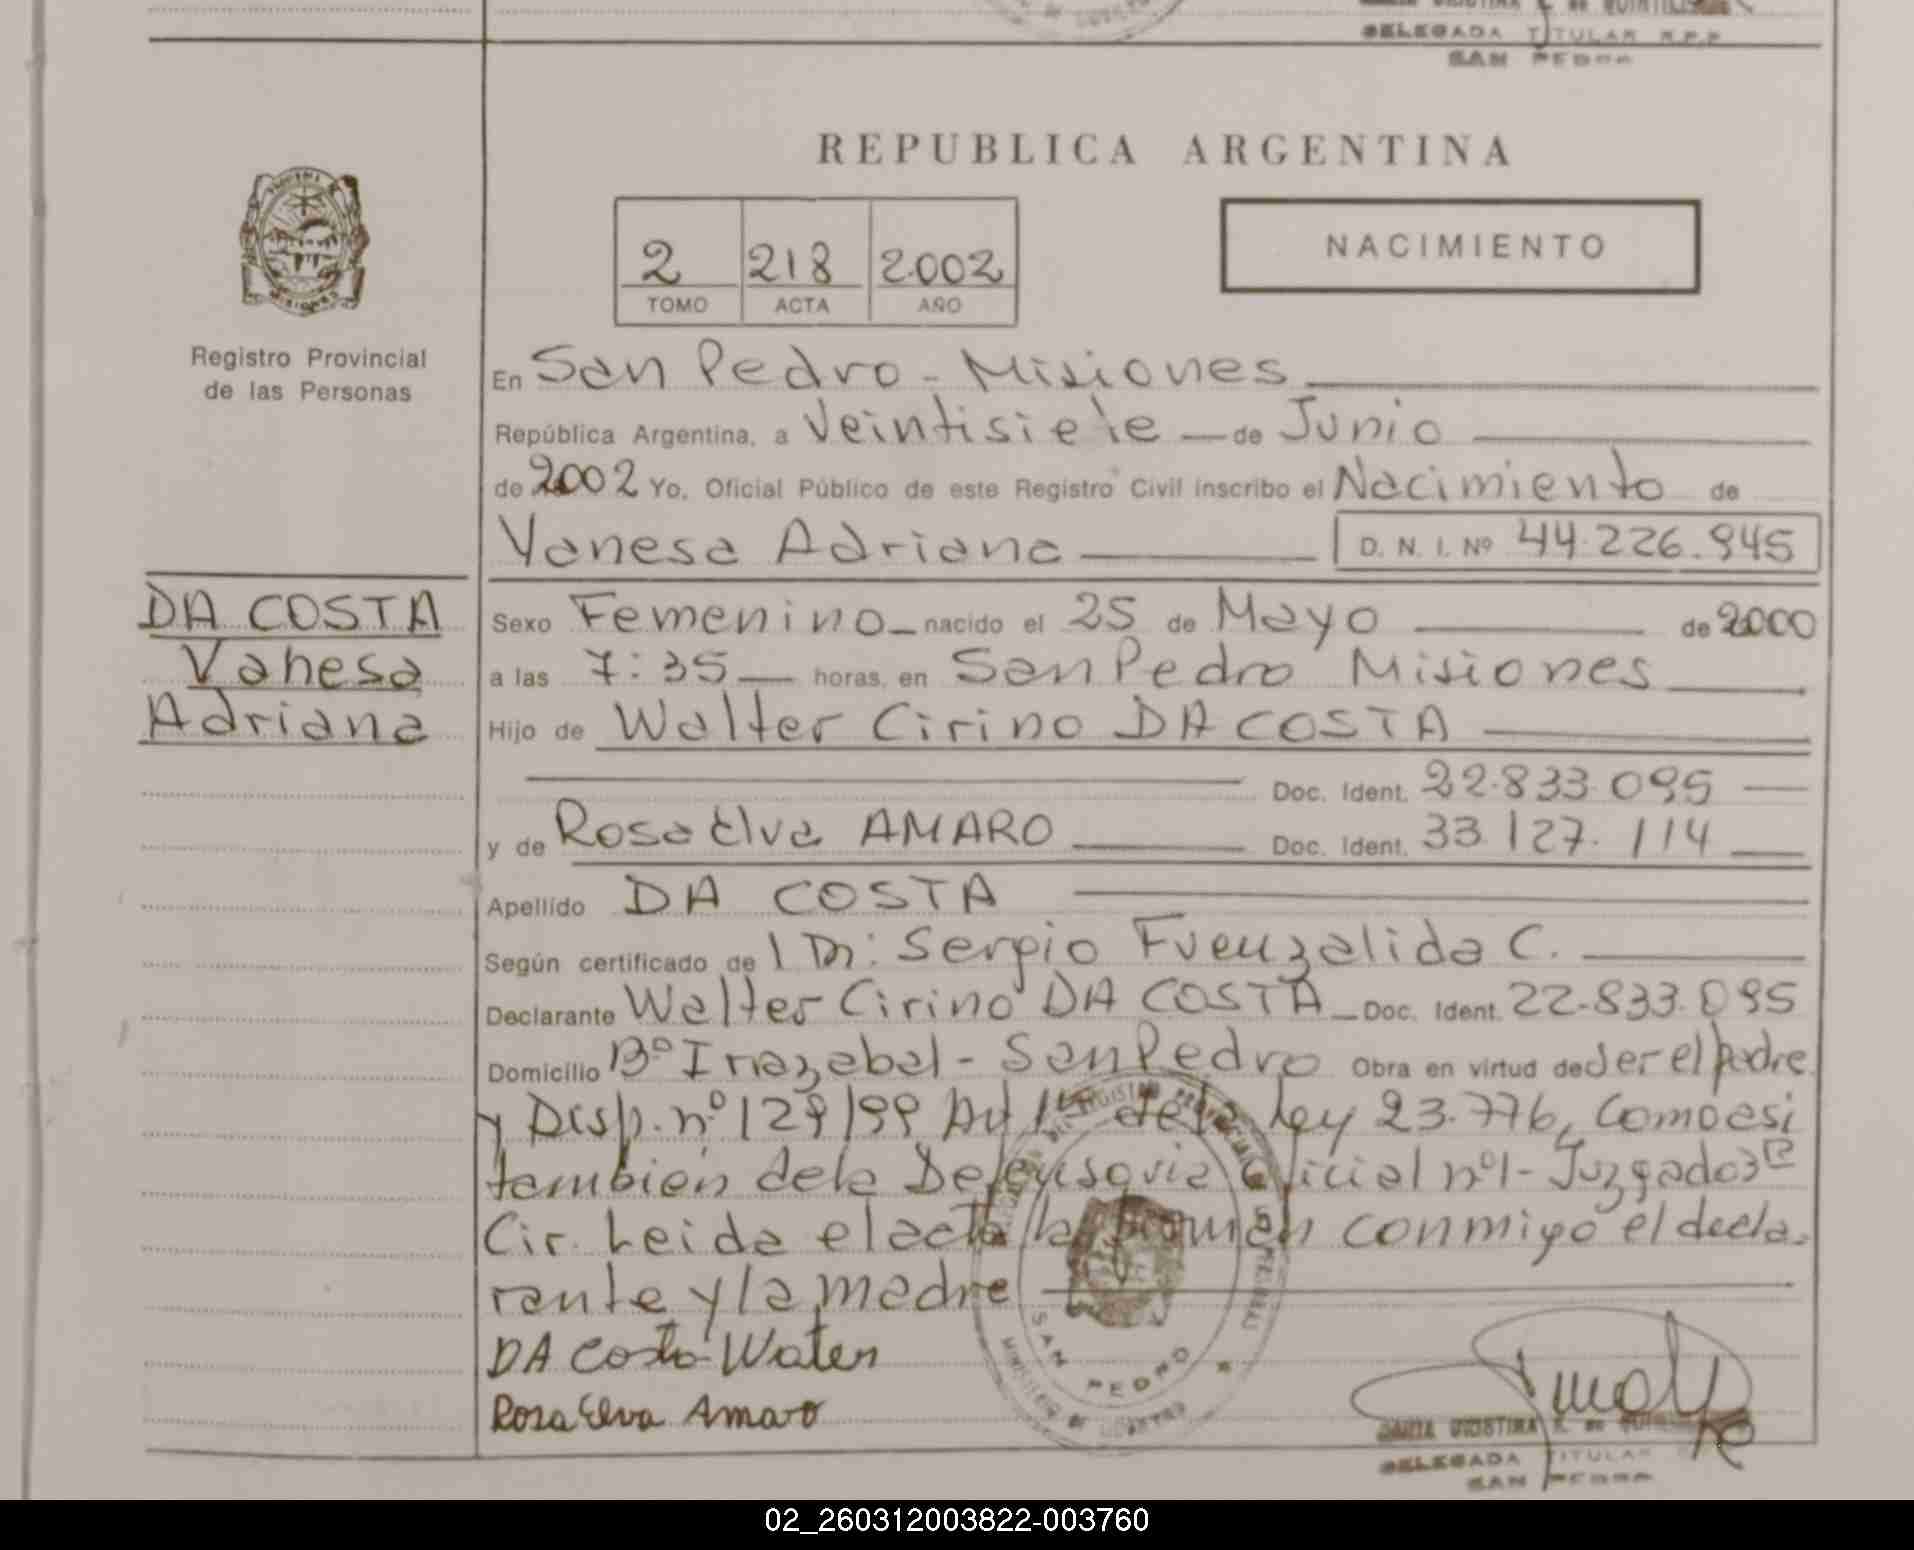 DELEGADA TITULAR R.P.P
SAN PEDRO
REPUBLICA ARGENTINA
2 218 2002
TOMO ACTA AÑO
NACIMIENTO
Registro Provincial
de las Personas
En San Pedro - Misiones
República Argentina, a Veintisiete — de Junio
de 2002 Yo, Oficial Público de este Registro Civil inscribo el Nacimiento de
Vanesa Adriana D. N. I. Nº 44.226.945
DA COSTA
Vanesa
Adriana
Sexo Femenino nacido el 25 de Mayo de 2000
a las 7:35 horas, en San Pedro Misiones
Hijo de Walter Cirino DA COSTA
Doc. Ident. 22.833.095
y de Rosa Elva AMARO Doc. Ident. 33.127.114
Apellido DA COSTA
Según certificado de Sergio Fuenzalida C.
Declarante Walter Cirino DA COSTA Doc. Ident. 22.833.095
Domicilio Bº Irrazabal - San Pedro Obra en virtud de ser el padre
y Disp. nº 129/99 de la Ley 23.776, Como asi
también dela Defensoria Oficial nº1 - Juzgado 3ª
Cir. Leida el acta la firman conmigo el decla-
rante y la madre
DA Costa Walter
Rosa Elva Amaro
SAN PEDRO
DELEGADA TITULAR
SAN PEDRO
02_260312003822-003760